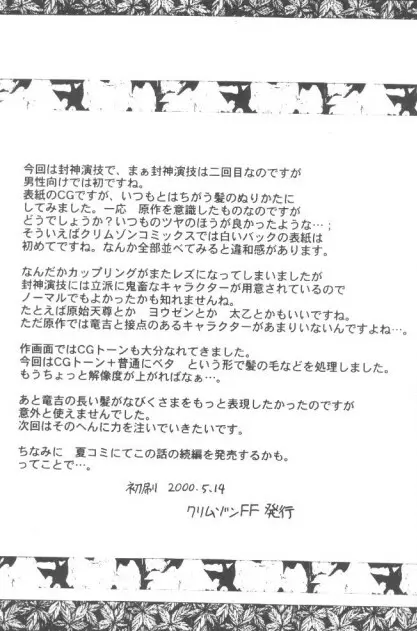 今回は封神演技で、まぁ封神演技は二回目なのですが
男性向けでは初ですね。
表紙のCGですが、いつもとはちがう髪のぬりかたに
してみました。一応 原作を意識したものなのですが
どうでしょうか？いつものツヤのほうが良かったような…；
そういえばクリムゾンコミックスでは白いバックの表紙は
初めてですね。なんか全部並べてみると違和感があります。
なんだかカップリングがまたレズになってしまいましたが
封神演技には立派に鬼畜なキャラクターが用意されているので
ノーマルでもよかったかも知れませんね。
たとえば原始天尊とか ヨウゼンとか 太乙とかもいいですね。
ただ原作では竜吉と接点のあるキャラクターがあまりいないんですよね…。
作画面ではCGトーンも大分なれてきました。
今回はCGトーン＋普通にベタ という形で髪の毛などを処理しました。
もうちょっと解像度が上がればなぁ…。
あと竜吉の長い髪がなびくさまをもっと表現したかったのですが
意外と使えませんでした。
次回はそのへんに力を注いでいきたいです。
ちなみに 夏コミにてこの話の続編を発売するかも。
ってことで…。
初刷 2000.5.14
クリムゾンFF 発行